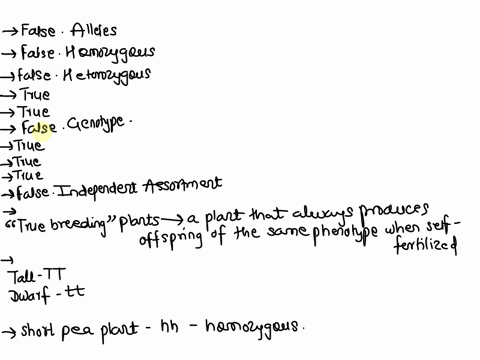 → False. Alleles
→ False. Homozygous
→ False. Heterozygous
→ True
→ True
→ False. Genotype.
→ True
→ True
→ True
→ False. Independent Assortment
→
"True breeding" plants → a plant that always produces
offspring of the same phenotype when self-
fertilized
→
Tall - TT
Dwarf - tt
→ short pea plant - hh - homozygous.